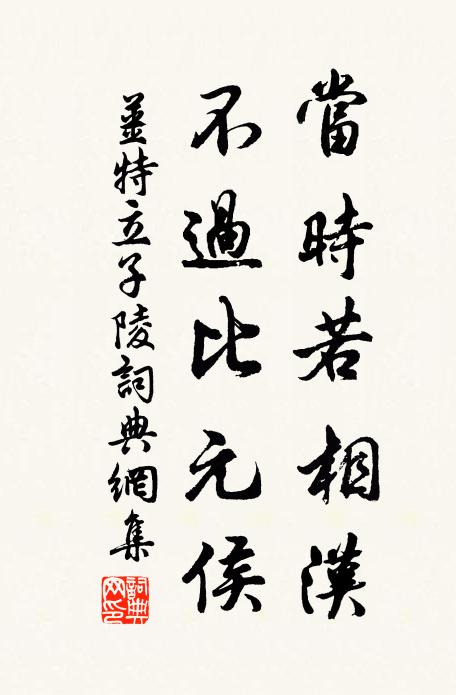 當時若相漢
不過比元侯
姜特立子陵詞典網集
詞典網印